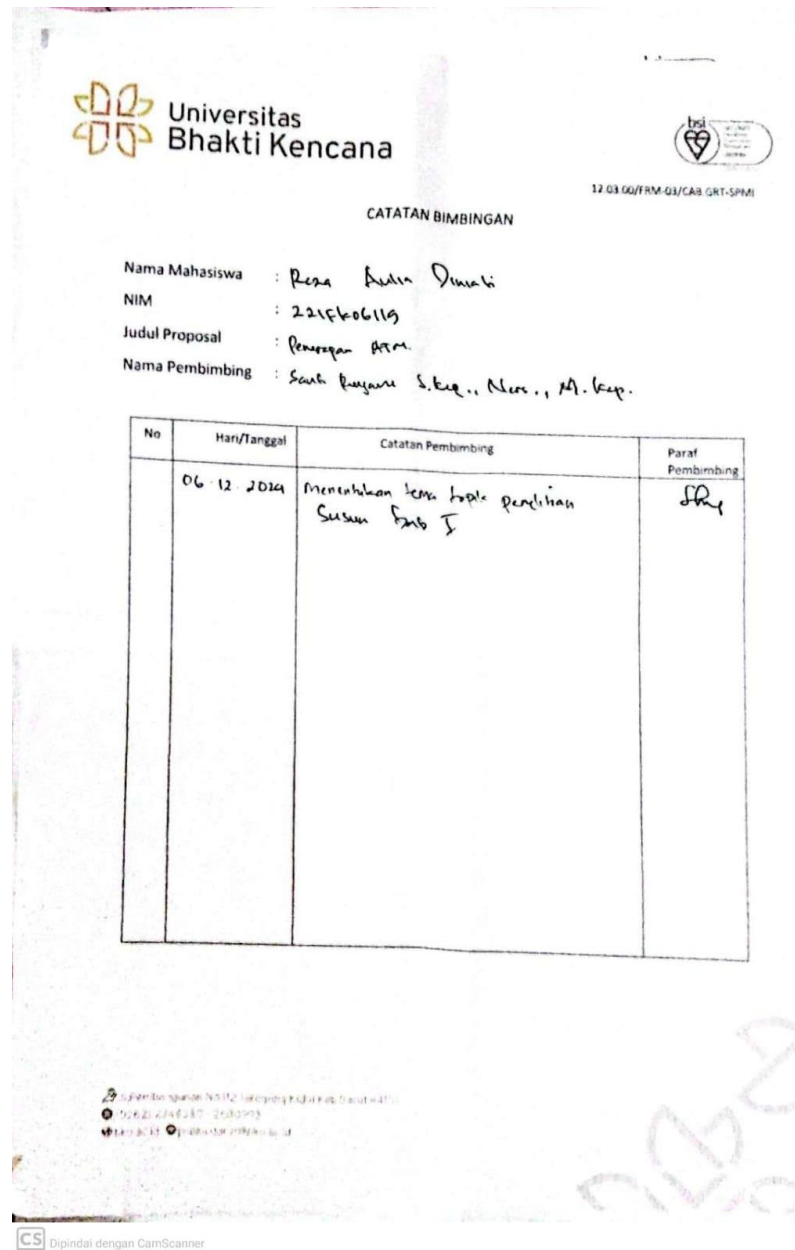 Universitas
Bhakti Kencana
bsi
12.03.00/FRM-03/CAB.GRT-SPMI
CATATAN BIMBINGAN
Nama Mahasiswa : Reza Aulia
NIM : 221FK06119
Judul Proposal : Penerapan ATM.
Nama Pembimbing : S.Kep., Ners., M.Kep.
No Hari/Tanggal Catatan Pembimbing Paraf Pembimbing
06.12.2024 Menentukan tema topik penelitian
Susun Bab I
CS Dipindai dengan CamScanner